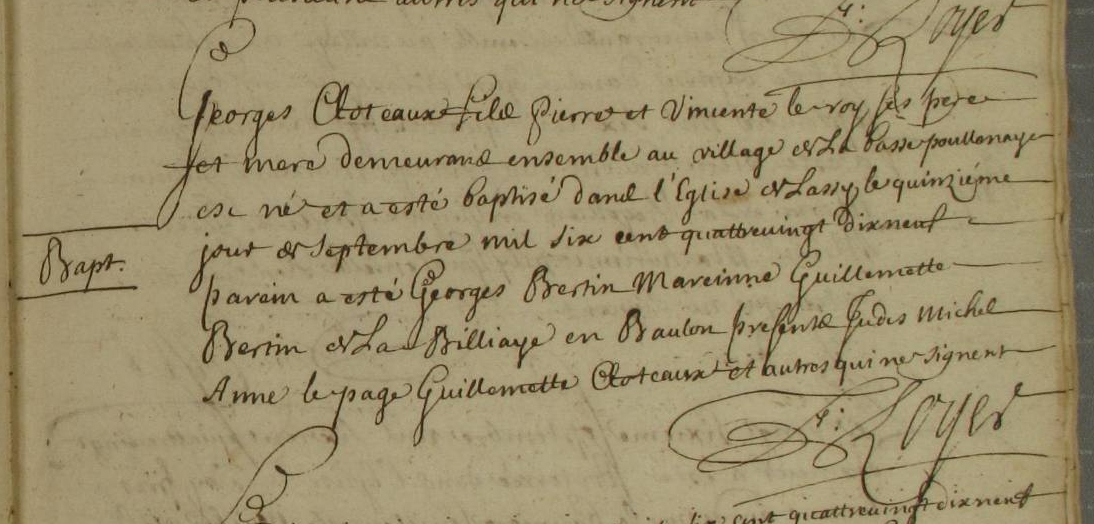 autres qui ne signent
F: Royer
Georges Cloteaux filz Pierre et Vincente le roy ses pere
et mere demeurans ensemble au village de La basse poullonaye
est né et a esté baptisé dans l'Eglise de Lassy le quinziéme
jour de septembre mil six cent quattrevingt dixneuf
Bapt.
parein a esté Georges Bertin Mareinne Guillemette
Bertin de La Billiaye en Baulon presents Judes Michel
Anne le page Guillemette Cloteaux et autres qui ne signent
F: Royer
cent quattrevingt dixneuf